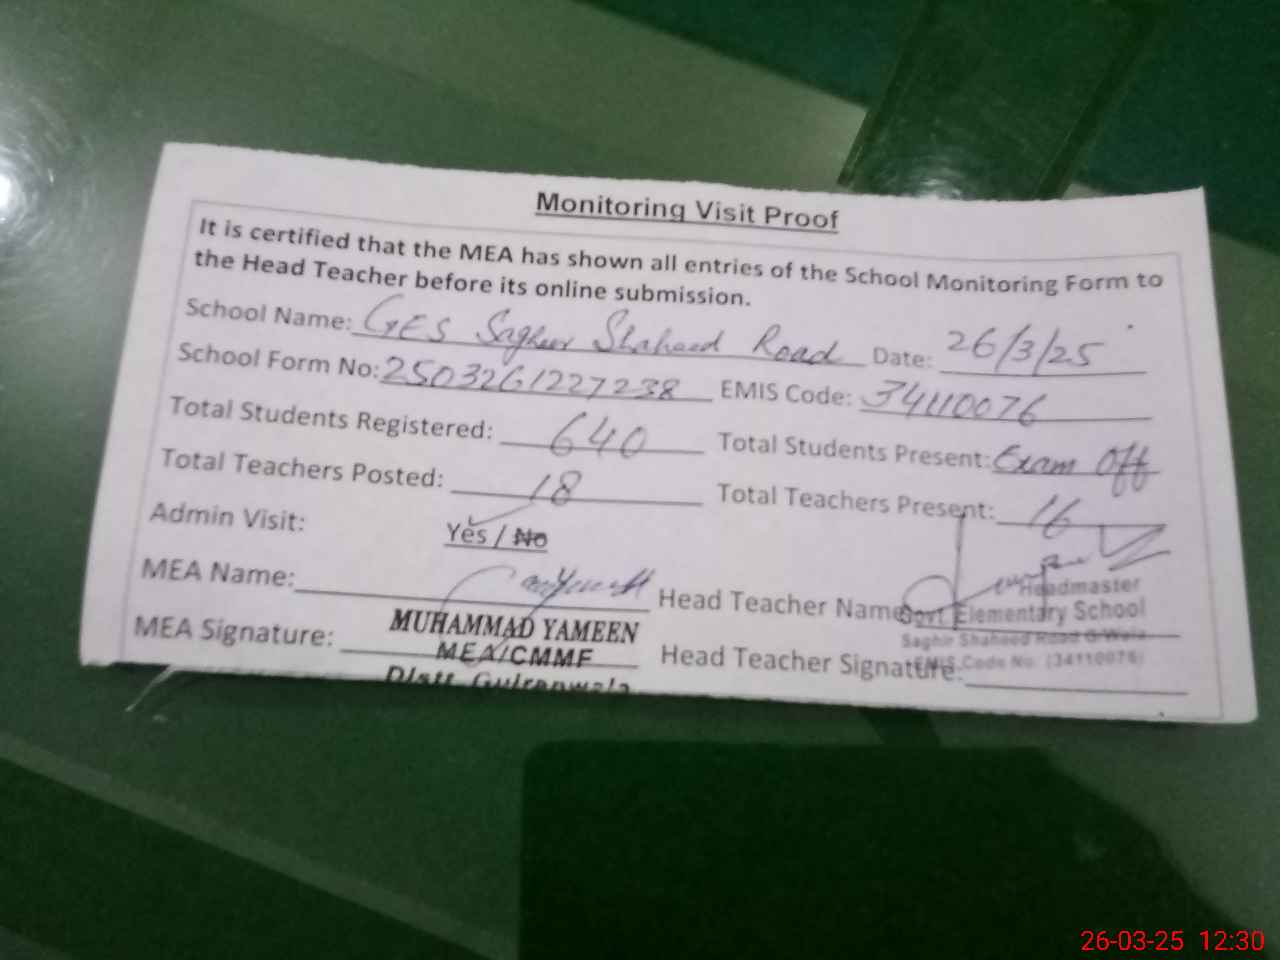 Monitoring Visit Proof
It is certified that the MEA has shown all entries of the School Monitoring Form to
the Head Teacher before its online submission.
School Name: GES Sagheer Shaheed Road Date: 26/3/25
School Form No: 2503261227238 EMIS Code: 34110076
Total Students Registered: 640 Total Students Present: Exam Off
Total Teachers Posted: 18 Total Teachers Present: 16
Admin Visit: Yes / No
MEA Name: Head Teacher Name
Headmaster
Govt. Elementary School
Saghir Shaheed Road G-Wala
EMIS Code No. (34110076)
MUHAMMAD YAMEEN
MEA Signature: MEA/CMMF Head Teacher Signature:
Distt. Gujranwala
26-03-25 12:30